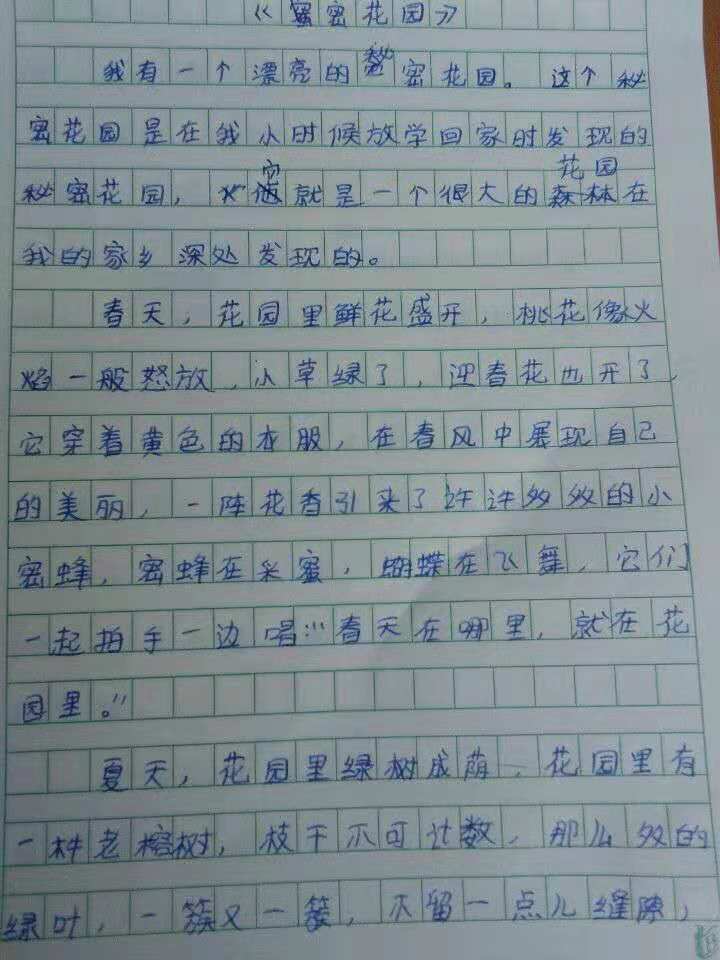 《蜜密花园》
我有一个漂亮的秘密花园。这个秘
密花园是在我小时候放学回家时发现的
花园
秘密花园，它就是一个很大的森林在
我的家乡深处发现的。
春天，花园里鲜花盛开，桃花像火
焰一般怒放，小草绿了，迎春花也开了，
它穿着黄色的衣服，在春风中展现自己
的美丽，一阵花香引来了许许多多的小
密蜂，密蜂在采蜜，蝴蝶在飞舞，它们
一起拍手一边唱：“春天在哪里，就在花
园里。”
夏天，花园里绿树成荫，花园里有
一种老榕树，枝干不可计数，那么多的
绿叶，一簇又一簇，不留一点儿缝隙，